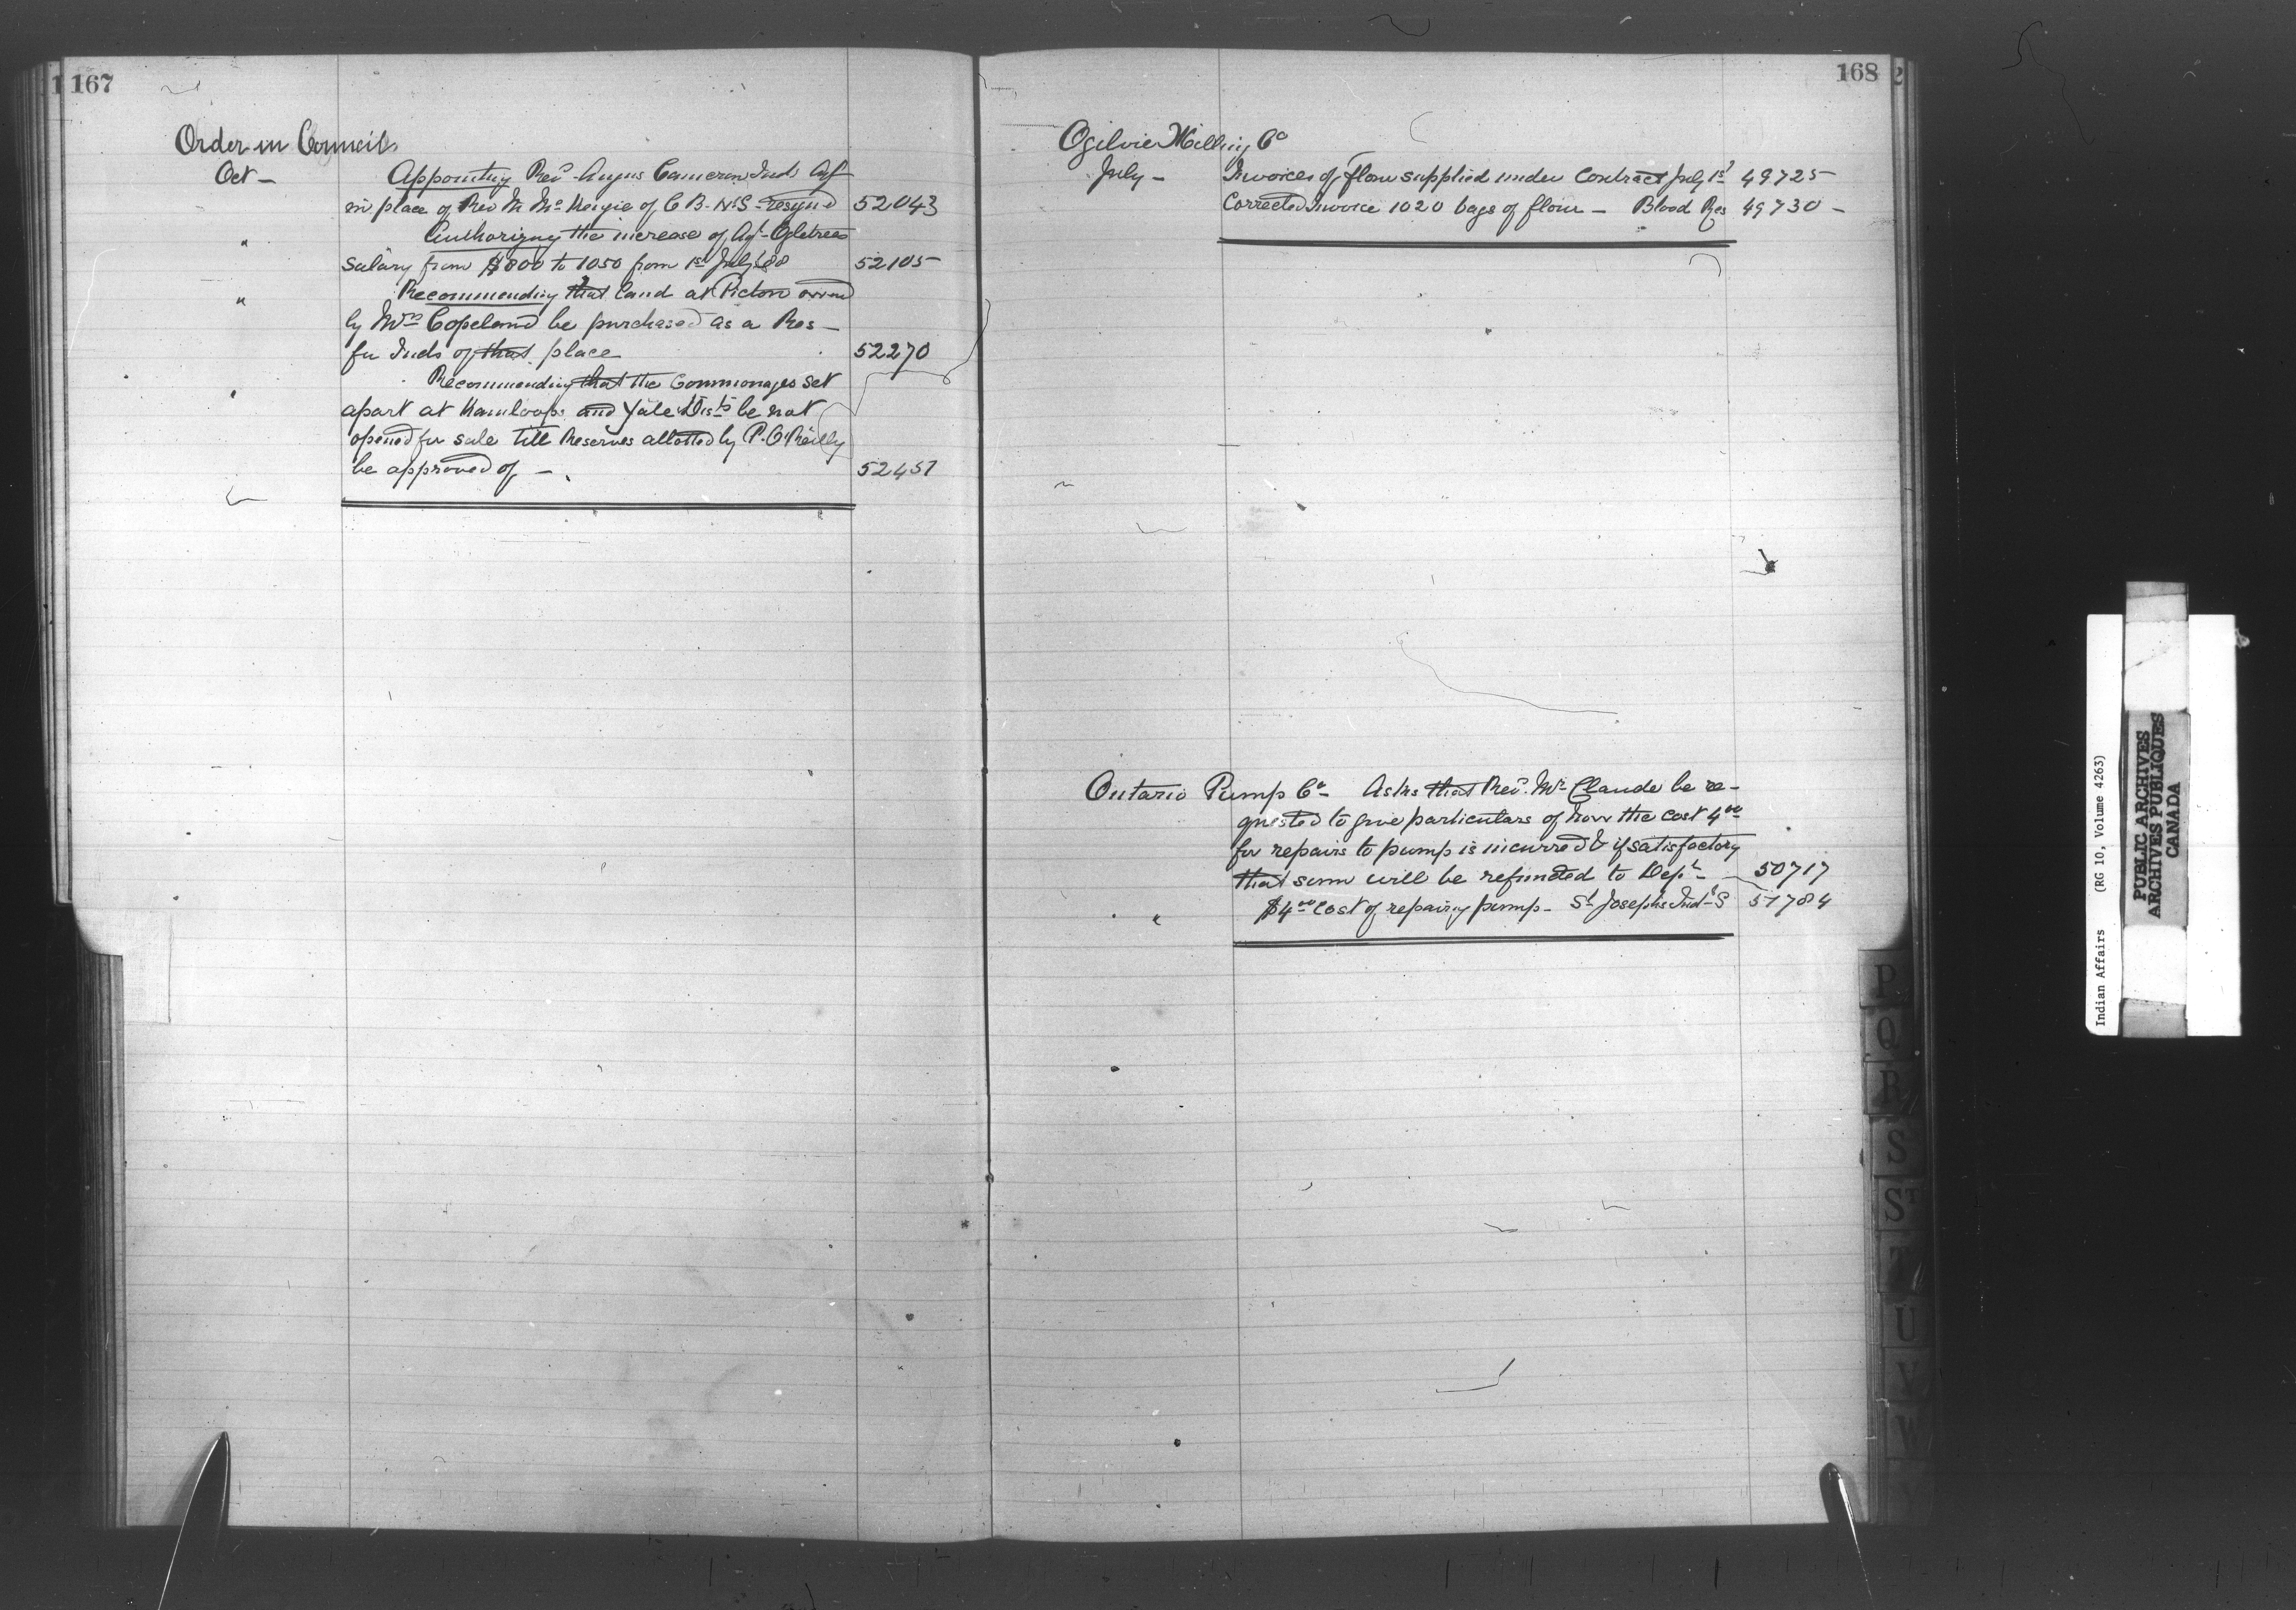 167
Order in Councils
Oct - Appointing Revd Angus Cameron Ind Agt
in place of Rev M McKenzie of C B. N.S - resignd 52043
" Authorizing the increase of Agt Ogletrees
Salary from $800 to 1050 from 1st July 88 52105
" Recommending that land at Picton owned
by Mrs Copeland be purchased as a Res -
for Inds of that place 52270
" Recommending that the Commonages set
apart at Kamloops and Yale Dists be not
opened for sale till Reserves allotted by P. O'Reilly
be approved of - 52451
168
Ogilvie Milling Co
July - Invoices of flour supplied under Contract July 1st 49725
Corrected Invoice 1020 bags of flour - Blood Res 49730 -
Ontario Pump Co - Asks that Revd. Mr Claude be re-
quested to give particulars of how the cost 4 00
for repairs to pump is incurred & if satisfactory
that sum will be refunded to Dept - 50717
" $4 00 cost of repairing pump - St Josephs Indl S 51784
P
Q
R
S
ST
T
U
V
W
Y
Indian Affairs (RG 10, Volume 4263)
PUBLIC ARCHIVES
ARCHIVES PUBLIQUES
CANADA